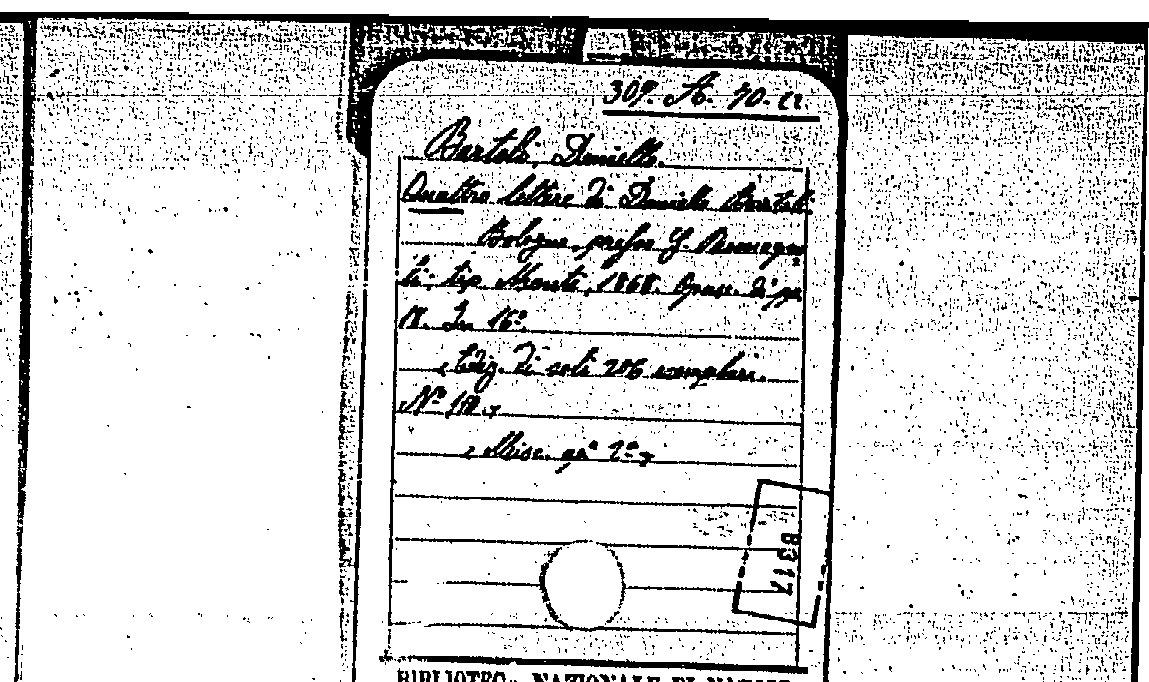 309. A. 70. (1
Bartoli, Daniello.
Quattro lettere di Daniello Bartoli.
Bologna, presso G. Romagno
li, tip. Monti, 1868. Opusc. di pa
18. In 16º.
(Ediz. di soli 206 esemplari.
Nº 110.)
(Misc. 2ª)
8317
BIBLIOTEC NAZIONALE DI